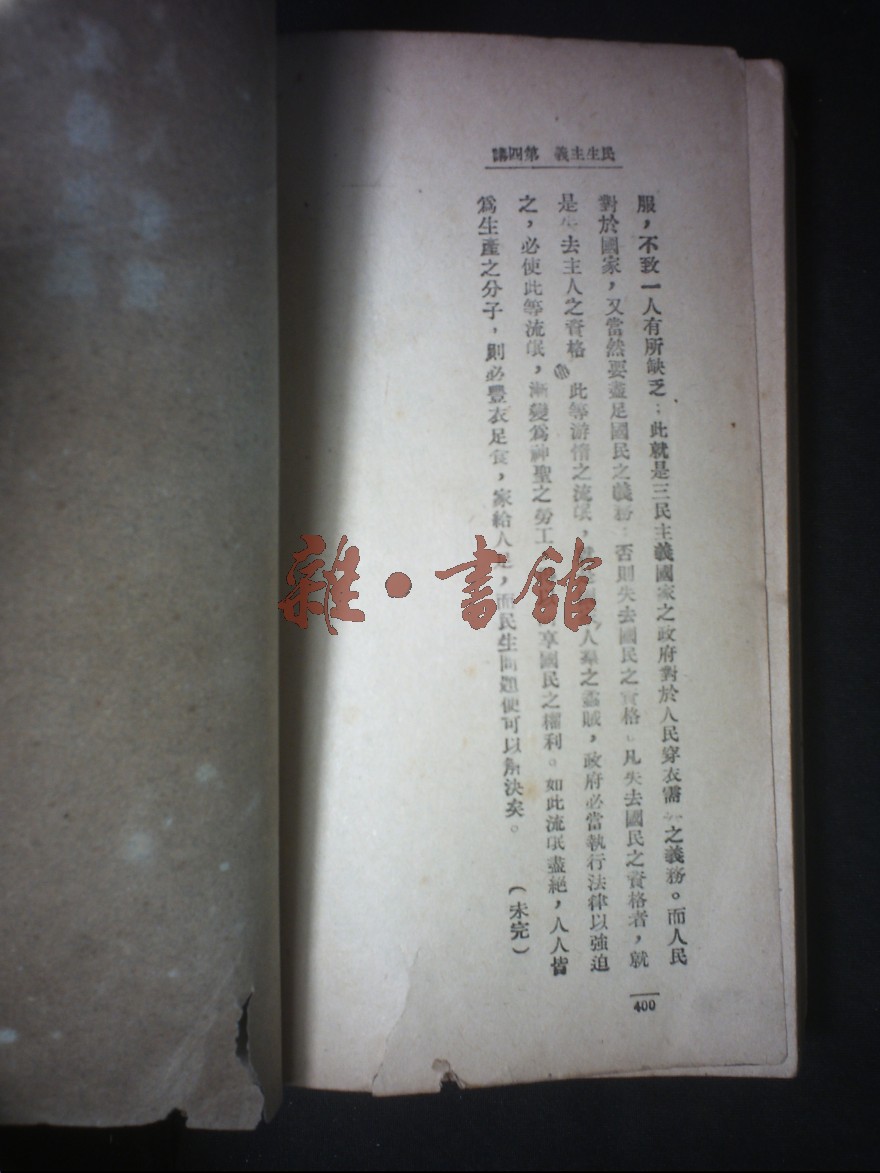 民生主義　第四講
服，不致一人有所缺乏；此就是三民主義國家之政府對於人民穿衣需之義務。而人民
對於國家，又當然要盡足國民之義務；否則失去國民之資格。凡失去國民之資格者，就
是失去主人之資格此等游惰之流氓，人羣之蟊賊，政府必當執行法律以強迫
之，必使此等流氓，漸變為神聖之勞工享國民之權利。如此流氓盡絕，人人皆
為生產之分子，則必豐衣足食，家給人足，而民生問題便可以解決矣。
（未完）
400
雜・書館